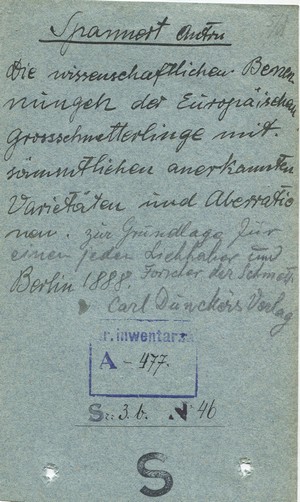 Spannert Anton
Die wissenschaftlichen Benen
nungen der Europäischen
Grossschmetterlinge mit
sämmtlichen anerkannten
Varietäten und Aberratio
nen. zur Grundlage für
einen jeden Liebhaber und
Berlin 1888. Forscher der Schmett.
Carl Dunckers Verlag
r. inwentarza
A - 477.
S: 3.b. N 46
S